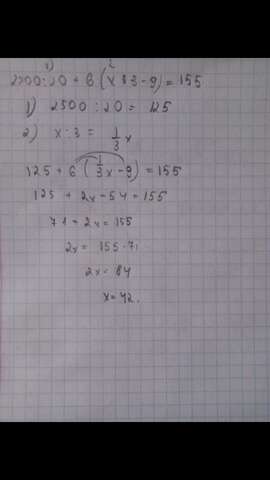 1) 2
2500:20 + 6(x:3-9) = 155
1) 2500:20 = 125
2) x:3 = 1/3x
125 + 6(1/3x-9) = 155
125 + 2x-54 = 155
71 + 2x = 155
2x = 155-71
2x = 84
x=42.